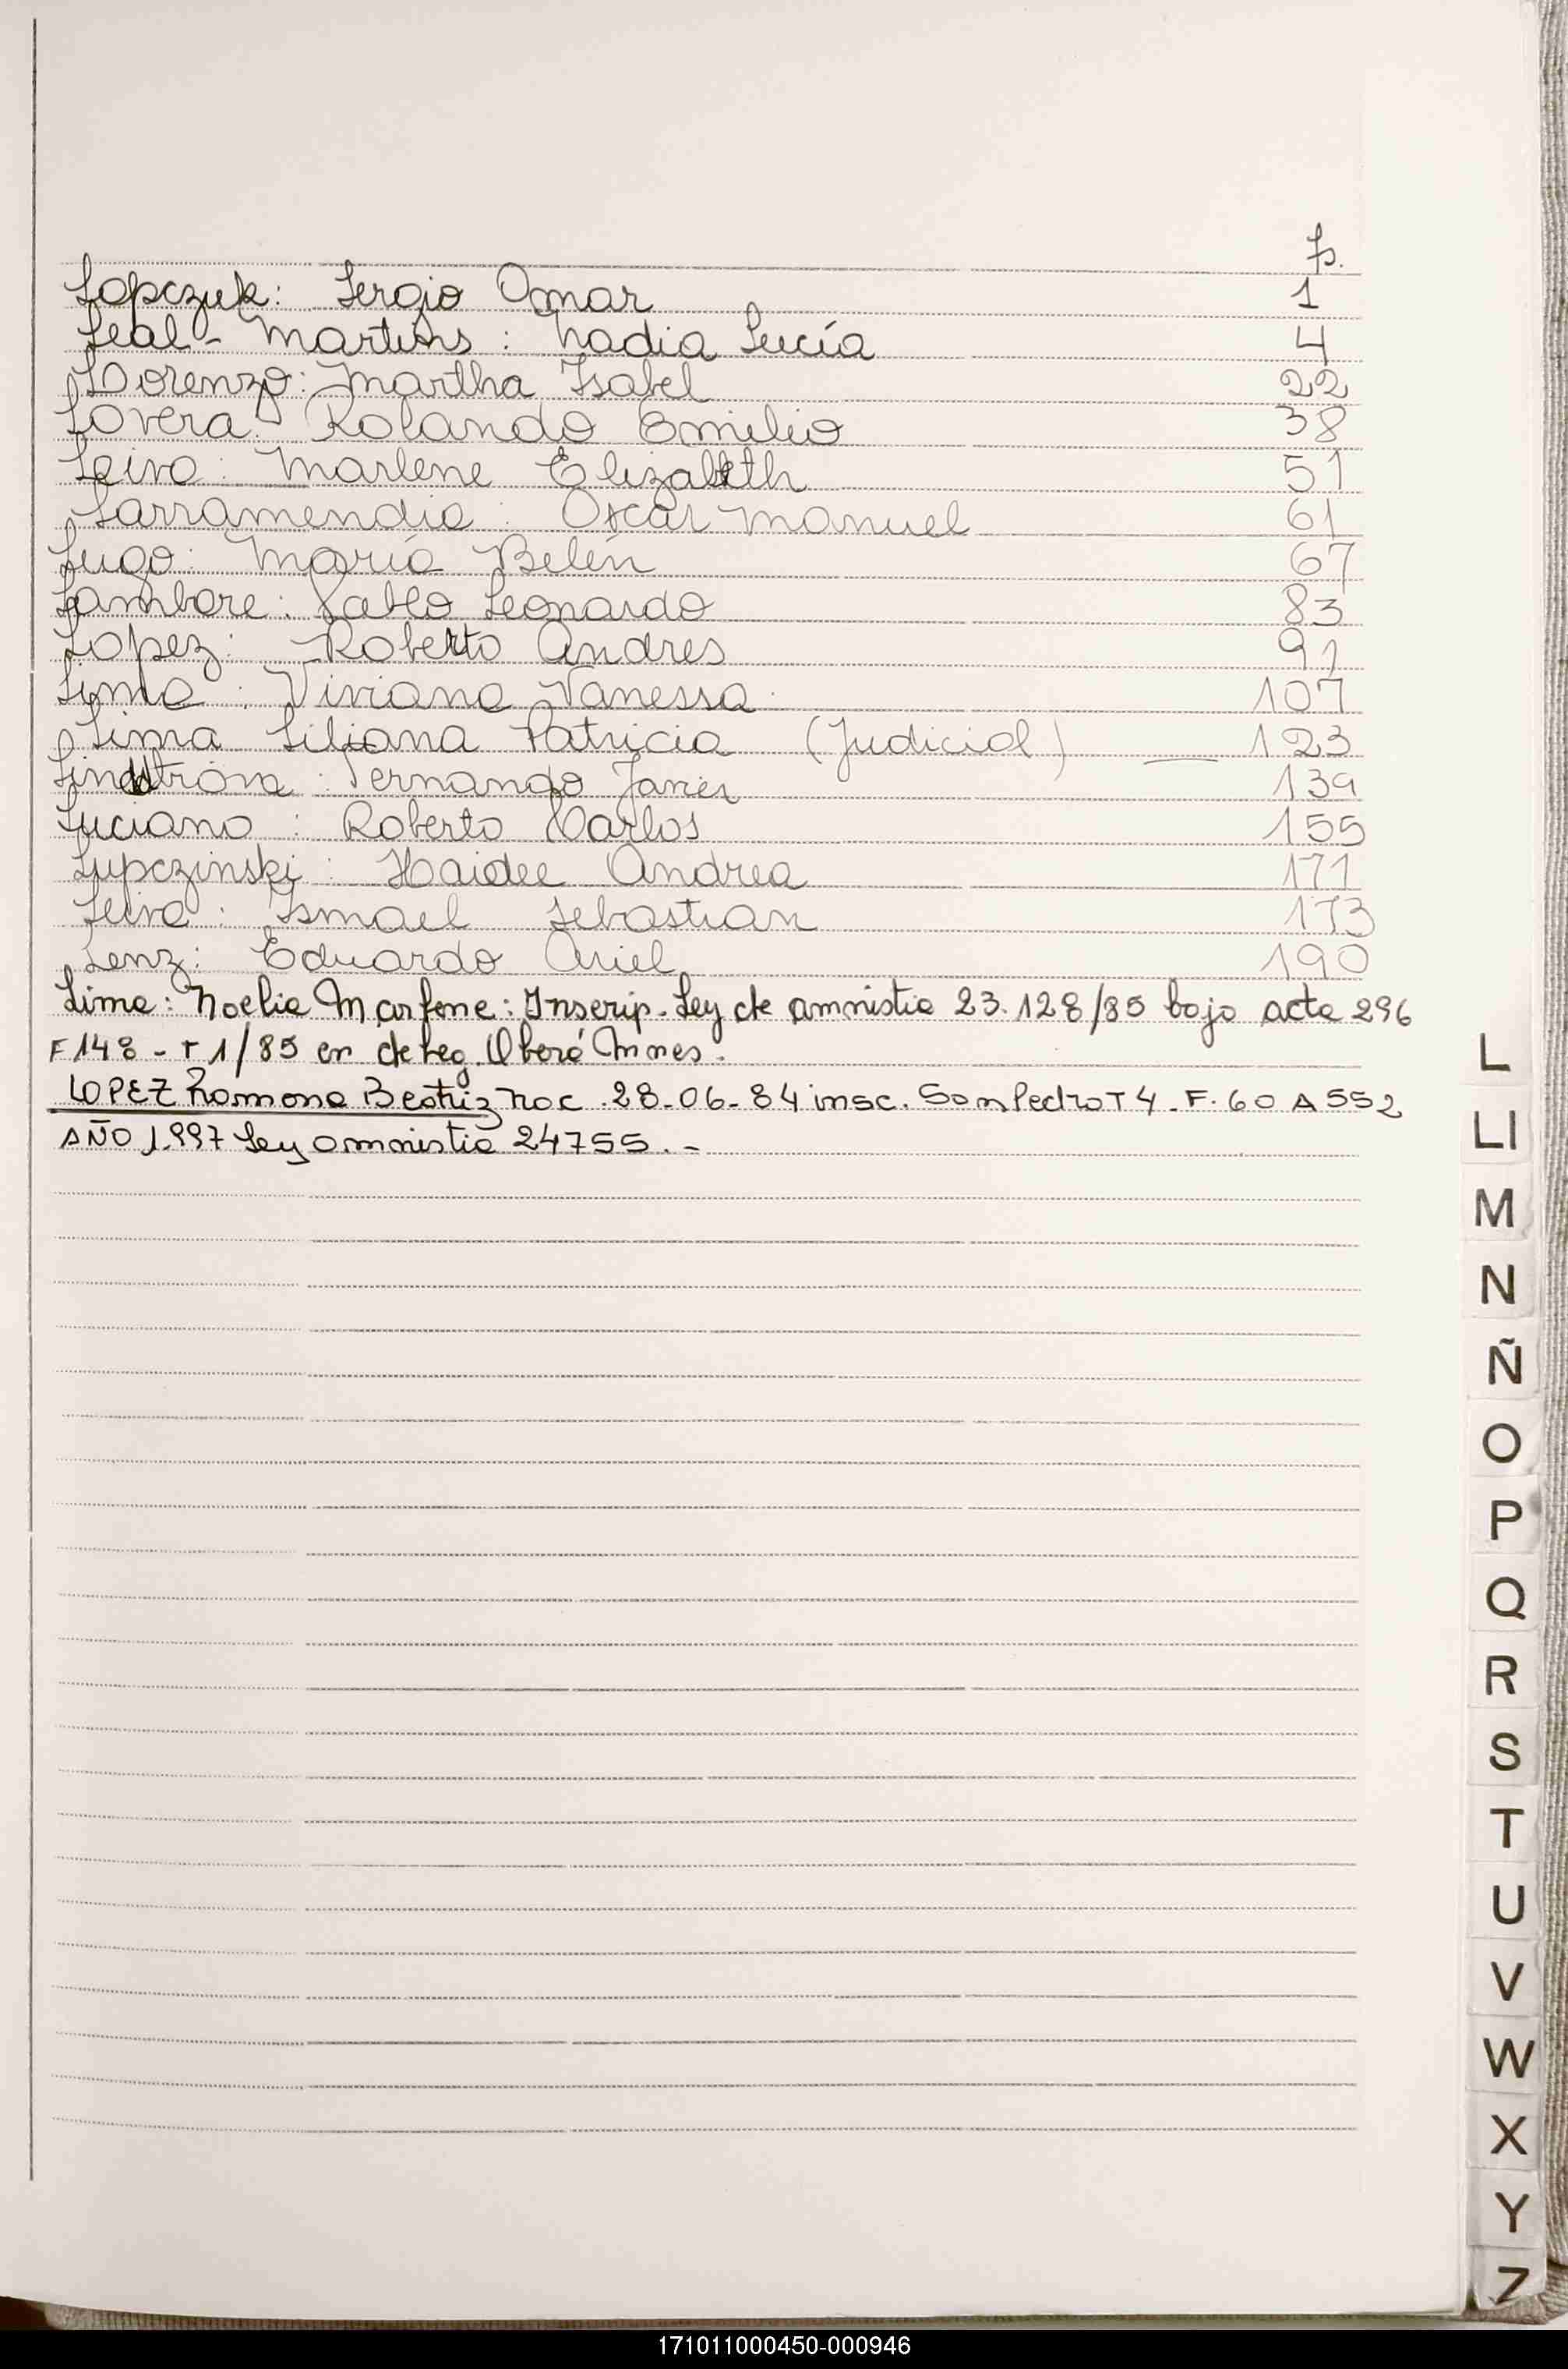 Fs.
Lopczuk: Sergio Omar 1
Leal - Martins : Nadia Lucía 4
Lorenzo: Martha Isabel 22
Lovera: Rolando Emilio 38
Leiva: Marlene Elizabeth 51
Larramendia: Oscar Manuel 61
Lugo: María Belén 67
Lambare: Pablo Leonardo 83
Lopez: Roberto Andres 91
Lima: Viviana Vanessa 107
Lima Liliana Patricia (Judicial) 123
Fernando Javier 139
Luciano: Roberto Carlos 155
Lupczinski: Haidee Andrea 171
Leiva: Ismael Sebastian 173
Lenz: Eduardo Ariel 190
Lima: Noelia Marlene: Inscrip. Ley de amnistia 23.128/85 bajo acta 296
F 148 - T 1/85 en deleg. Oberá Mnes.
LOPEZ Ramona Beatriz Nac. 28-06-84 insc. San Pedro T 4. F. 60 A 552
AÑO 1.997 Ley amnistia 24755.-
L
LI
M
N
Ñ
O
P
Q
R
S
T
U
V
W
X
Y
Z
171011000450-000946